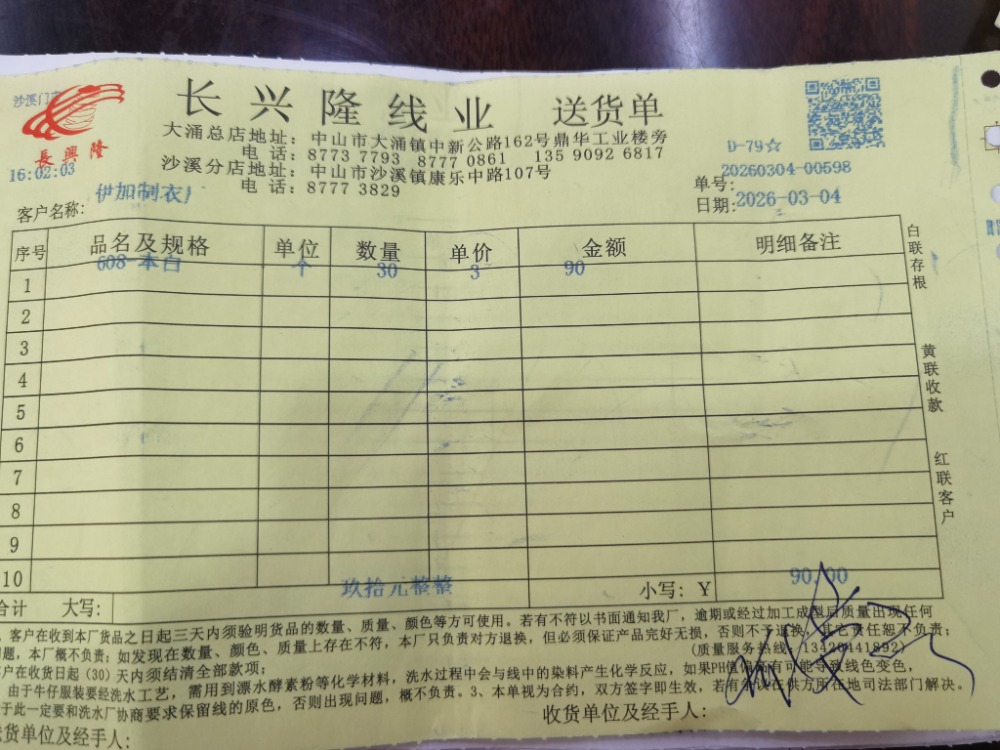 沙溪门市
長興隆
长兴隆线业 送货单
大涌总店地址：中山市大涌镇中新公路162号鼎华工业楼旁
电话：8773 7793 8777 0861 135 9092 6817
沙溪分店地址：中山市沙溪镇康乐中路107号
电话：8777 3829
D-79☆
16:02:03
单号：20260304-00598
客户名称：伊加制衣厂
日期：2026-03-04
序号 品名及规格 单位 数量 单价 金额 明细备注
1 608-本白 个 30 3 90
2
3
4
5
6
7
8
9
10
白联存根
黄联收款
红联客户
合计 大写： 玖拾元整整 小写：￥ 90.00
客户在收到本厂货品之日起三天内须验明货品的数量、质量、颜色等方可使用。若有不符以书面通知我厂，逾期或经过加工成型后质量出现任何
问题，本厂概不负责；如发现在数量、颜色、质量上存在不符，本厂只负责对方退换，但必须保证产品完好无损，否则不予退换，其它责任恕不负责；
客户在收货日起（30）天内须结清全部款项；
(质量服务热线：13420441892)
由于牛仔服装要经洗水工艺，需用到漂水酵素粉等化学材料，洗水过程中会与线中的染料产生化学反应，如果PH值偏高有可能导致线色变色，
于此一定要和洗水厂协商要求保留线的原色，否则出现问题，概不负责。3、本单视为合约，双方签字即生效，若有争议在供方所在地司法部门解决。
送货单位及经手人： 收货单位及经手人：